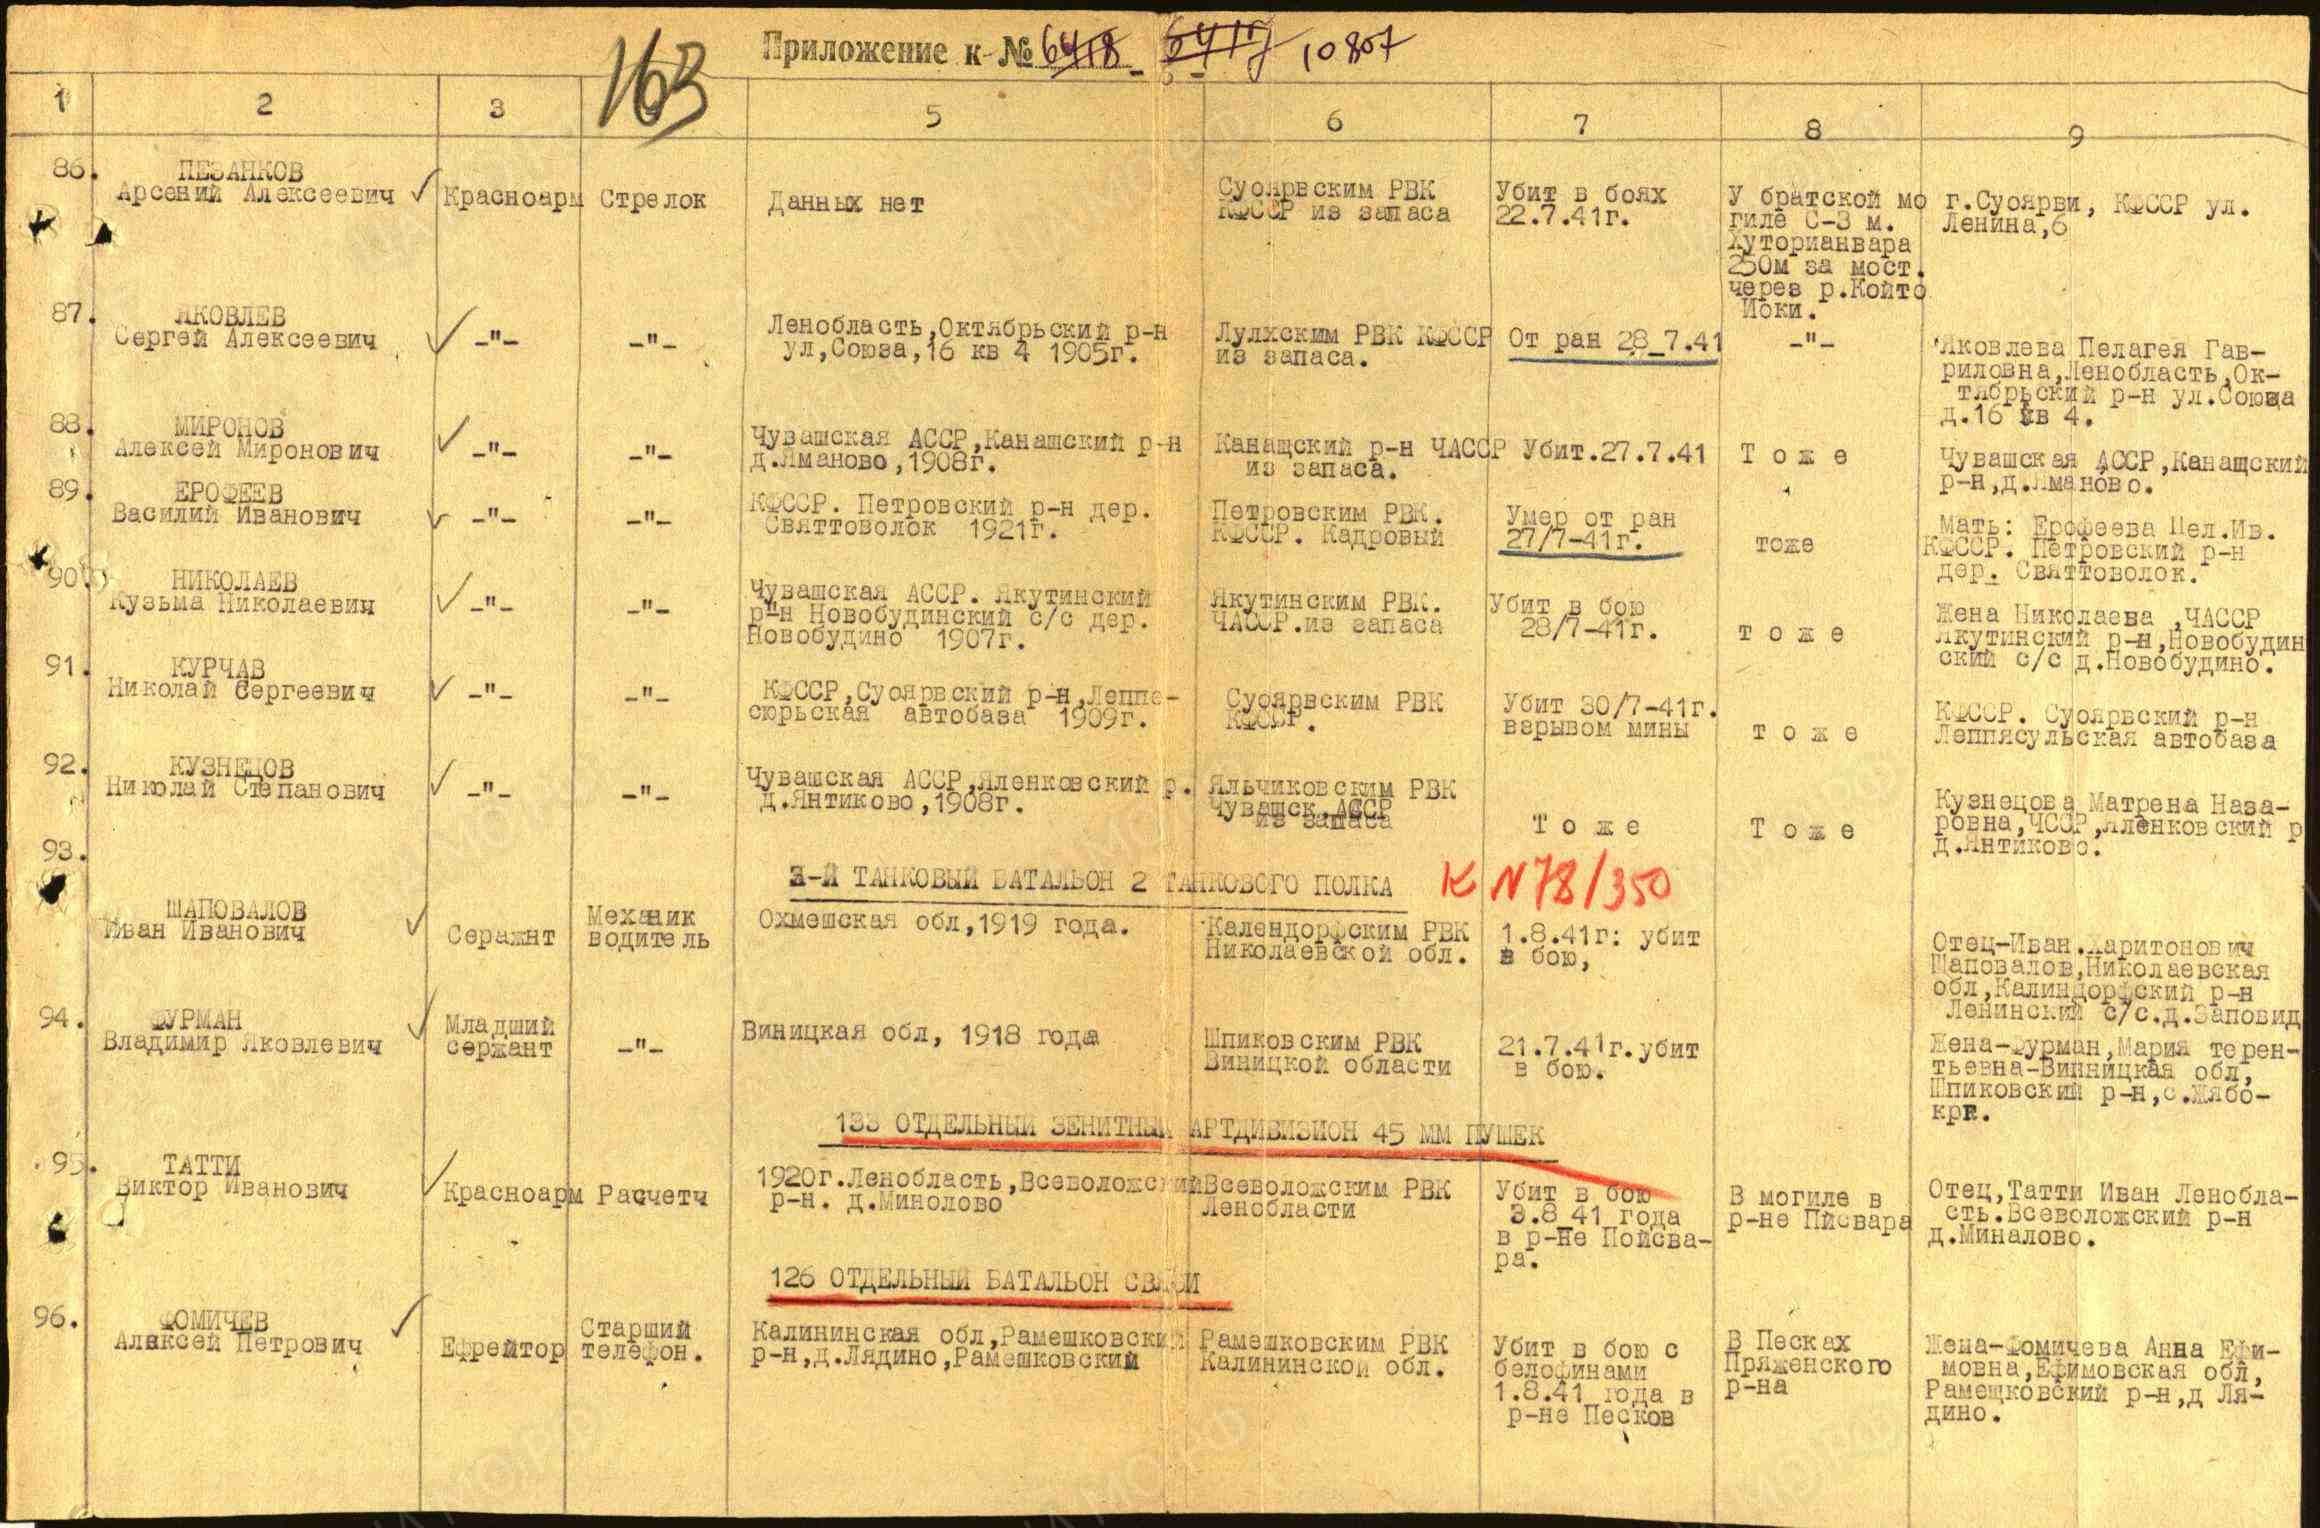 Приложение к №6418 6419 10807
163
1 2 3 5 6 7 8 9
86. ПЕЗАНКОВ
Арсений Алексеевич
Красноарм
Стрелок
Данных нет
Суоярвским РВК
КФССР из запаса
Убит в боях
22.7.41г.
У братской мо
гиле С-З м.
Хуторианвара
250м за мост.
через р.Който
Иоки.
г.Суоярви, КФССР ул.
Ленина,6
87. ЯКОВЛЕВ
Сергей Алексеевич
-"-
-"-
Ленобласть,Октябрьский р-н
ул,Союза,16 кв 4 1905г.
Лулхским РВК КФССР
из запаса.
От ран 28_7.41
-"-
Яковлева Пелагея Гав-
риловна,Ленобласть,Ок-
тябрьский р-н ул.Союза
д.16 кв 4.
88. МИРОНОВ
Алексей Миронович
-"-
-"-
Чувашская АССР,Канашский р-н
д.Яманово,1908г.
Канащский р-н ЧАССР
из запаса.
Убит.27.7.41
Т о ж е
Чувашская АССР,Канащский
р-н,д.Яманово.
89. ЕРОФЕЕВ
Василий Иванович
-"-
-"-
КФССР. Петровский р-н дер.
Святтоволок 1921г.
Петровским РВК.
КФССР. Кадровый
Умер от ран
27/7-41г.
тоже
Мать: Ерофеева Пел.Ив.
КФССР. Петровский р-н
дер. Святтоволок.
90. НИКОЛАЕВ
Кузьма Николаевич
-"-
-"-
Чувашская АССР. Якутинский
р-н Новобудинский с/с дер.
Новобудино 1907г.
Якутинским РВК.
ЧАССР.из запаса
Убит в бою
28/7-41г.
т о ж е
Жена Николаева ,ЧАССР
Якутинский р-н,Новобудин
ский с/с д.Новобудино.
91. КУРЧАВ
Николай Сергеевич
-"-
-"-
КФССР,Суоярвский р-н,Леппе-
сюрьская автобаза 1909г.
Суоярвским РВК
КФССР.
Убит 30/7-41г.
взрывом мины
т о ж е
КФССР. Суоярвский р-н
Леппясульская автобаза
92. КУЗНЕЦОВ
Николай Степанович
-"-
-"-
Чувашская АССР,Яленковский р.
д.Янтиково,1908г.
Яльчиковским РВК
Чувашск,АССР
из запаса
Т о ж е
Т о ж е
Кузнецова Матрена Наза-
ровна,ЧССР,Яленковский р
д.Янтиково.
93.
3-Й ТАНКОВЫЙ БАТАЛЬОН 2 ТАНКОВОГО ПОЛКА
К N78/350
ШАПОВАЛОВ
Иван Иванович
Серажнт
Механик
водитель
Охмешская обл,1919 года.
Календорфским РВК
Николаевской обл.
1.8.41г: убит
в бою,
Отец-Иван.Харитонович
Шаповалов,Николаевская
обл,Калиндорфский р-н
Ленинский с/с.д.Заповид
94. ФУРМАН
Владимир Яковлевич
Младший
сержант
-"-
Виницкая обл, 1918 года
Шпиковским РВК
Виницкой области
21.7.41г.убит
в бою.
Жена-Фурман,Мария терен-
тьевна-Винницкая обл,
Шпиковский р-н,с.Жябо-
кре.
133 ОТДЕЛЬНЫЙ ЗЕНИТНЫЙ АРТДИВИЗИОН 45 ММ ПУШЕК
95. ТАТТИ
Виктор Иванович
Красноарм
Расчетч
1920г.Ленобласть,Всеволожский
р-н. д.Минолово
Всеволожским РВК
Ленобласти
Убит в бою
3.8 41 года
в р-не Пойсва-
ра.
В могиле в
р-не Пйсвара
Отец,Татти Иван Ленобла-
сть.Всеволожский р-н
д.Миналово.
126 ОТДЕЛЬНЫЙ БАТАЛЬОН СВЯЗИ
96. ФОМИЧЕВ
Алексей Петрович
Ефрейтор
Старший
телефон.
Калининская обл,Рамешковский
р-н,д.Лядино,Рамешковский
Рамешковским РВК
Калининской обл.
Убит в бою с
белофинами
1.8.41 года в
р-не Песков
В Песках
Пряженского
р-на
Жена-Фомичева Анна Ефи-
мовна,Ефимовская обл,
Рамешковский р-н,д Ля-
дино.